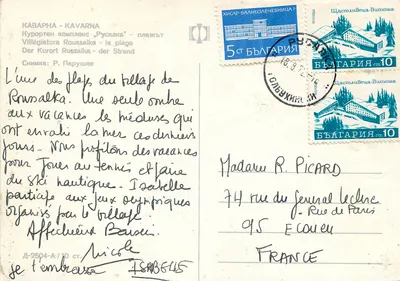 КАВАРНА - KAVARNA
Курортен комплекс „Русалка" - плажът
Villégiatura Roussalka - la plage
Der Kurort Rusalka - der Strand
Снимка: Р. Парушев
5 СТ БЪЛГАРИЯ
БЪЛГАРИЯ 10
БЪЛГАРИЯ 10
L'une des plages du village de
Roussalka. Une seule ombre
aux vacances les méduses qui
ont envahi la mer ces derniers
jours. Nous profitons des vacances
pour jouer au tennis et faire
du ski nautique. Isabelle
participe aux jeux olympiques
organisés par le village.
Affectueux Baisers
Nicole
je t'embrasse ISABELLE
Д-2604-А
Madame R. PICARD
74 rue du général Leclerc
- Rue de Paris
95 ECOUEN
FRANCE